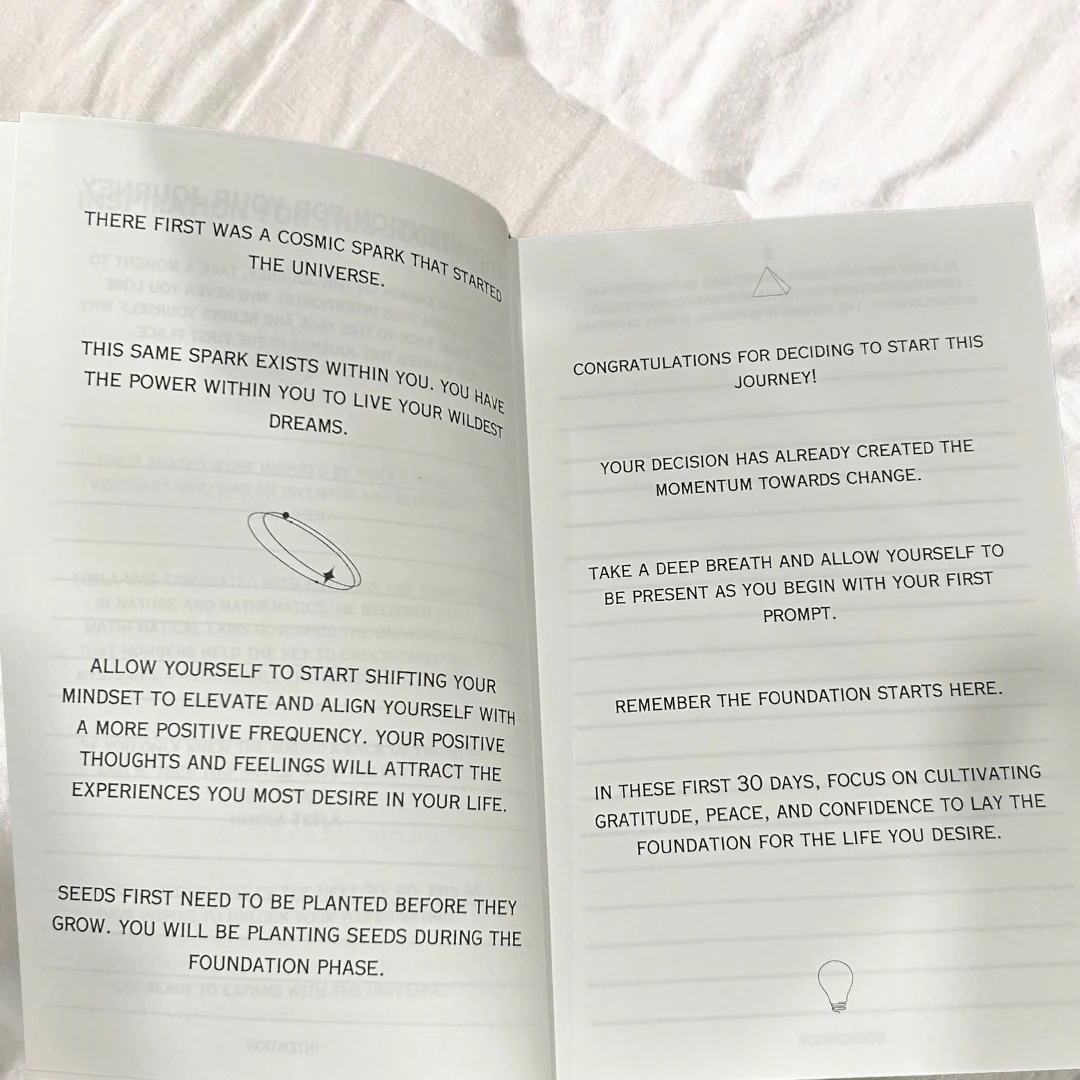 THERE FIRST WAS A COSMIC SPARK THAT STARTED
THE UNIVERSE.
THIS SAME SPARK EXISTS WITHIN YOU. YOU HAVE
THE POWER WITHIN YOU TO LIVE YOUR WILDEST
DREAMS.
ALLOW YOURSELF TO START SHIFTING YOUR
MINDSET TO ELEVATE AND ALIGN YOURSELF WITH
A MORE POSITIVE FREQUENCY. YOUR POSITIVE
THOUGHTS AND FEELINGS WILL ATTRACT THE
EXPERIENCES YOU MOST DESIRE IN YOUR LIFE.
SEEDS FIRST NEED TO BE PLANTED BEFORE THEY
GROW. YOU WILL BE PLANTING SEEDS DURING THE
FOUNDATION PHASE.
CONGRATULATIONS FOR DECIDING TO START THIS
JOURNEY!
YOUR DECISION HAS ALREADY CREATED THE
MOMENTUM TOWARDS CHANGE.
TAKE A DEEP BREATH AND ALLOW YOURSELF TO
BE PRESENT AS YOU BEGIN WITH YOUR FIRST
PROMPT.
REMEMBER THE FOUNDATION STARTS HERE.
IN THESE FIRST 30 DAYS, FOCUS ON CULTIVATING
GRATITUDE, PEACE, AND CONFIDENCE TO LAY THE
FOUNDATION FOR THE LIFE YOU DESIRE.